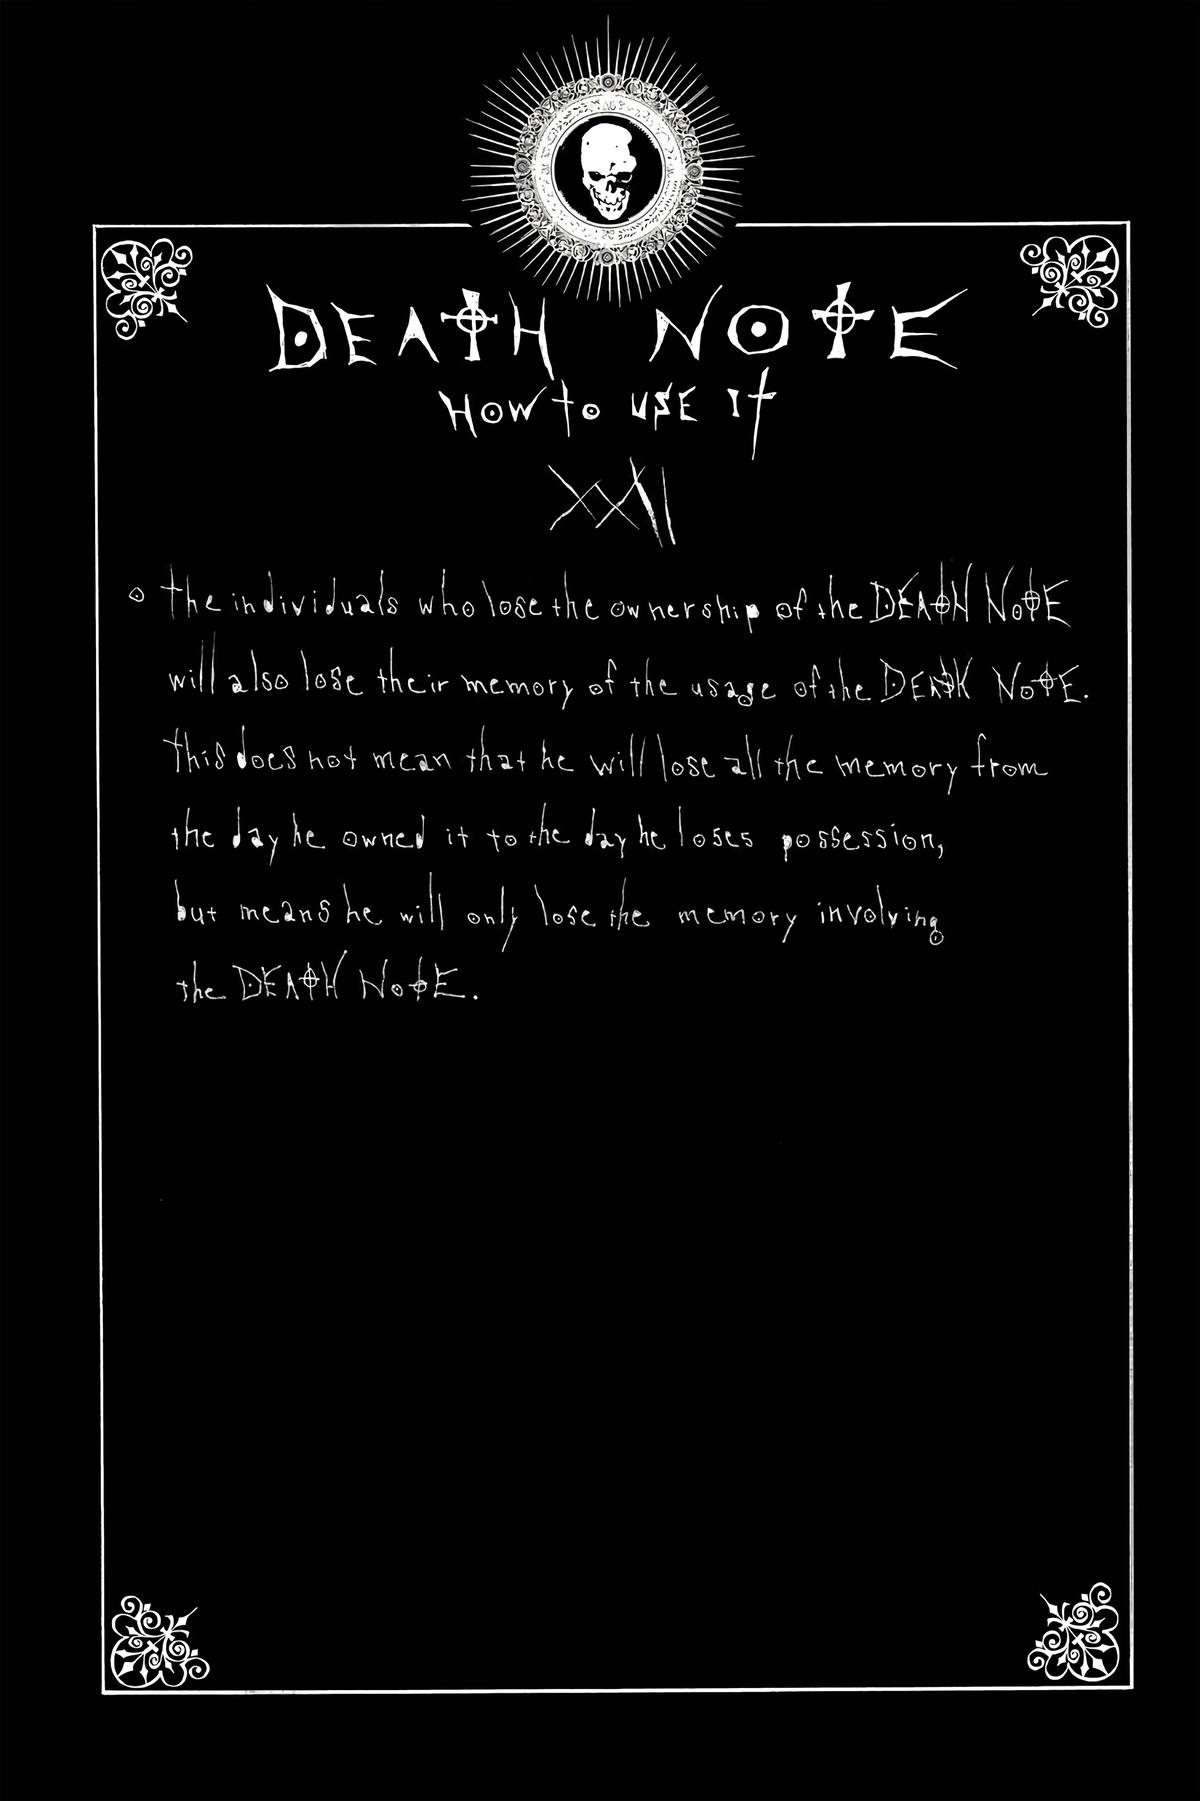 DEATH NOTE
HOW to USE It
XXII
o the individuals who lose the ownership of the DEATH NOTE
will also lose their memory of the usage of the DEATH NOTE.
this does not mean that he will lose all the memory from
the day he owned it to the day he loses possession,
but means he will only lose the memory involving
the DEATH NOTE.